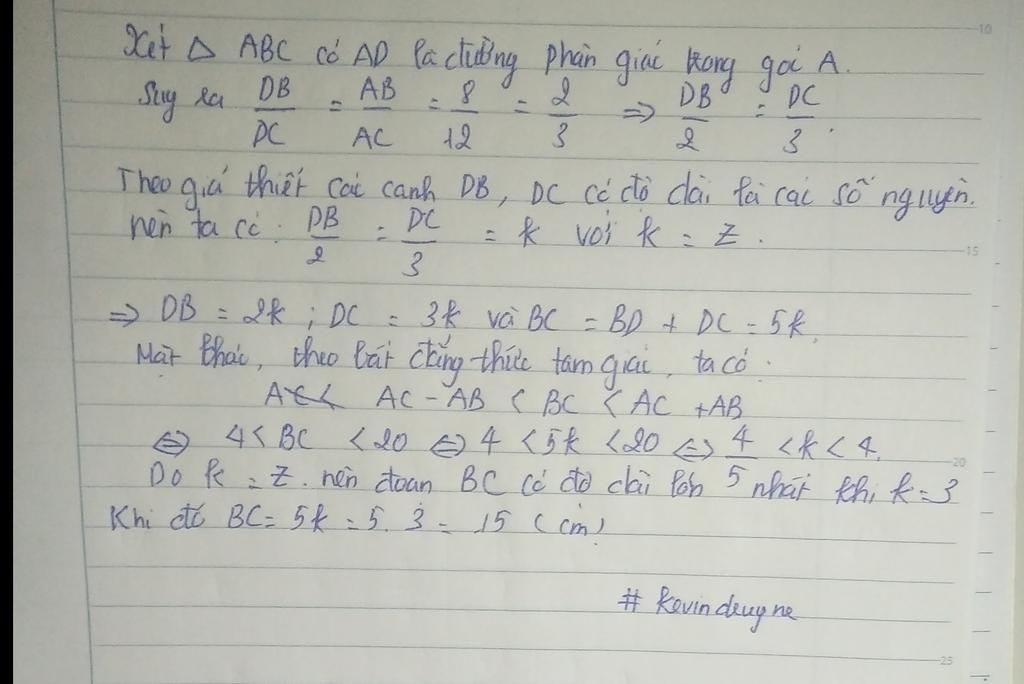 Xét △ ABC có AD là đường phân giác trong góc A.
Suy ra DB/DC = AB/AC = 8/12 = 2/3 => DB/2 = DC/3.
Theo giả thiết các cạnh DB, DC có độ dài là các số nguyên.
nên ta có: DB/2 = DC/3 = k với k = Z.
=> DB = 2k ; DC = 3k và BC = BD + DC = 5k.
Mặt khác, theo bất đẳng thức tam giác, ta có:
AC - AB < BC < AC + AB
<=> 4 < BC < 20 <=> 4 < 5k < 20 <=> 4/5 < k < 4.
Do k = Z. nên đoạn BC có độ dài lớn nhất khi k = 3
Khi đó BC = 5k = 5.3 = 15 (cm)
# kevindeuyne
10
15
20
25